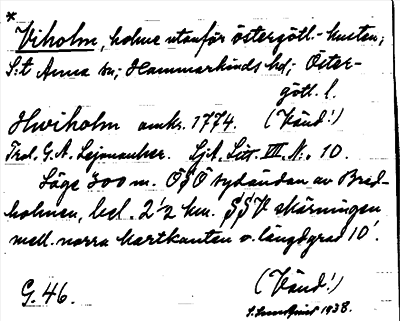 * Viholm, holme utanför östergötl.-kusten;
S:t Anna sn; Hammarkinds hd; Öster-
götl. l.
Hwiholm omkr. 1774. (Vänd!)
Trol. G. A. Lejonancker. Sj.A. Litt. VIII. N:o 10.
Läge 300 m. OSO sydändan av Bred-
holmen, bel. 2 1/2 km. SSV skärningen
mell. norra kartkanten o. längdgrad 10'.
(Vänd!)
G. 46.
S. Lundqvist 1938.